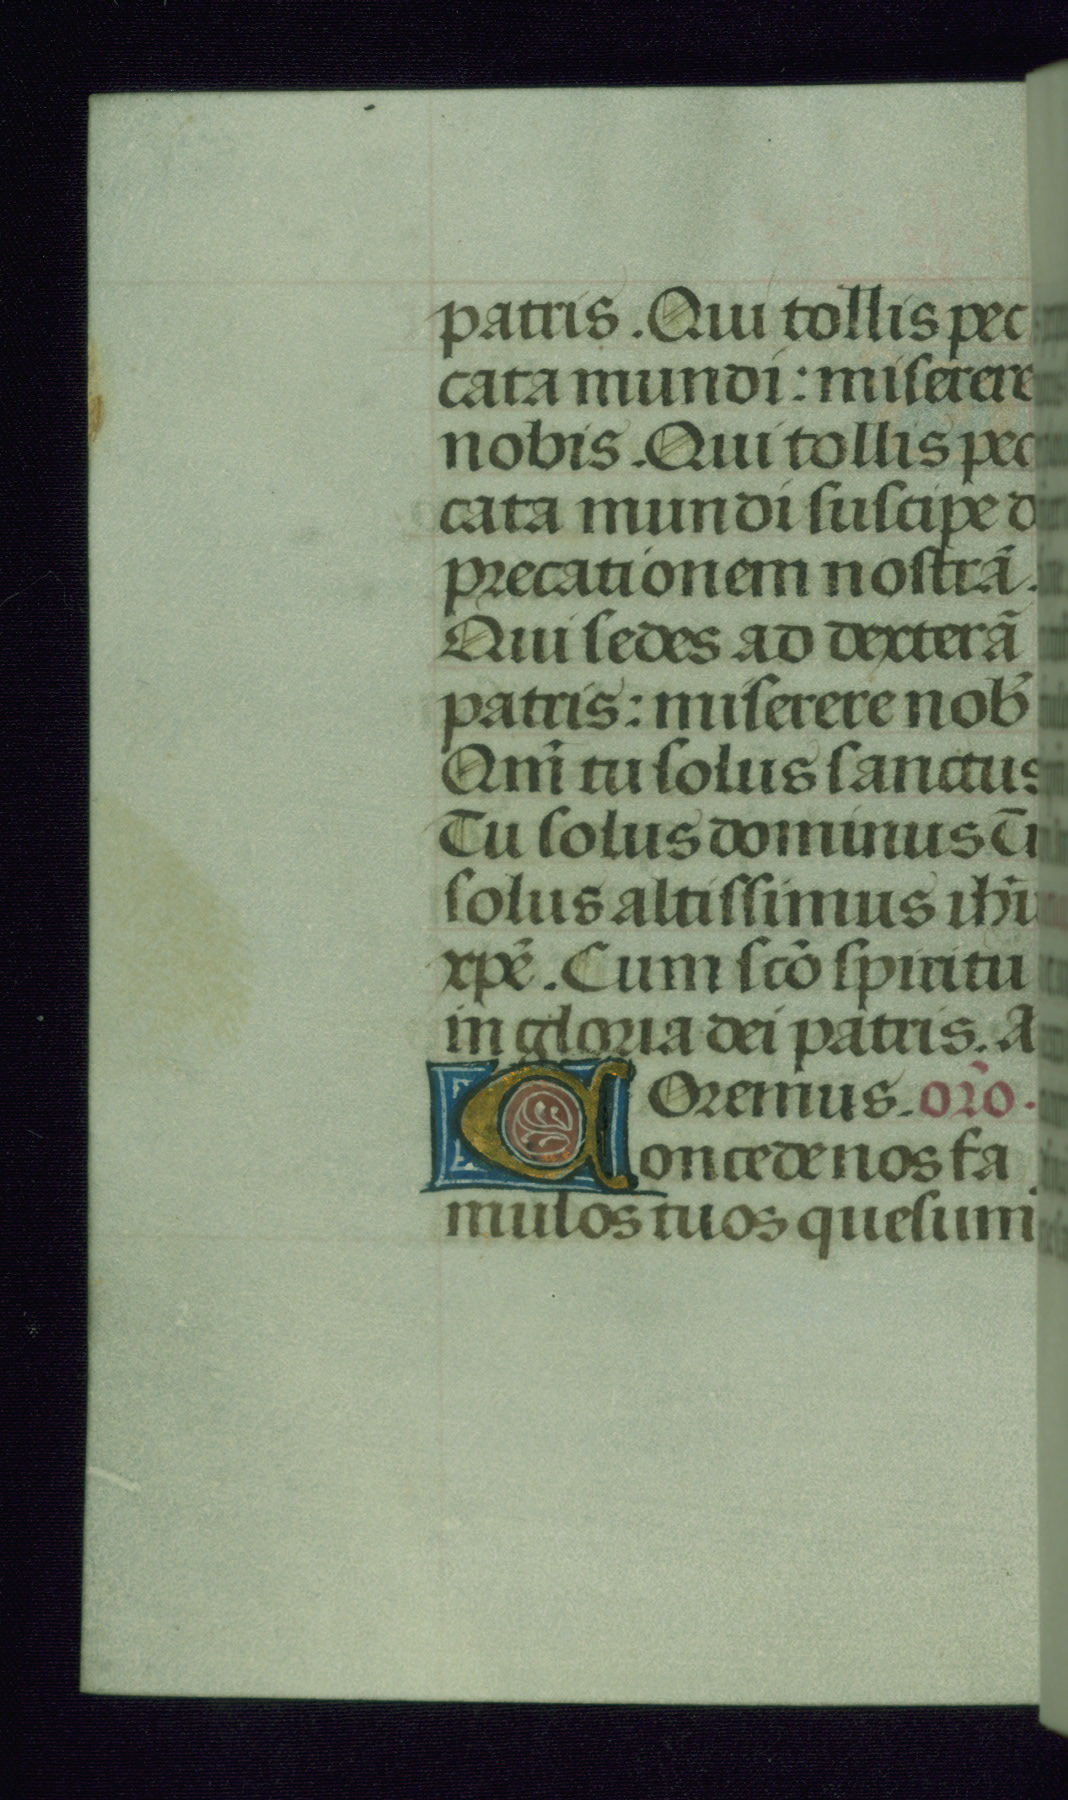 patris. Qui tollis pec
cata mundi: miserere
nobis. Qui tollis pec
cata mundi suscipe d
precationem nostrã.
Qui sedes ad dexterã
patris: miserere nob̃
Qm̃ tu solus sanctus
Tu solus dominus Tu
solus altissimus ihũ
xpẽ. Cum scõ spiritu
in gloria dei patris. A
Oremus. orõ.
Concede nos fa
mulos tuos quesum